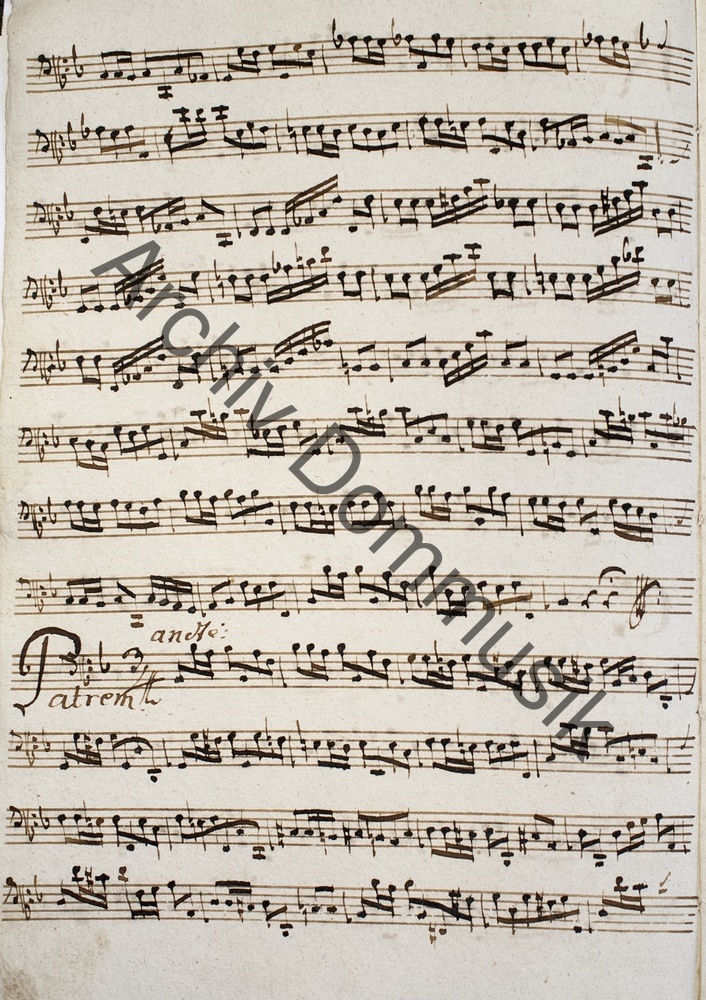 andte:
Patrem
Archiv Dommusik